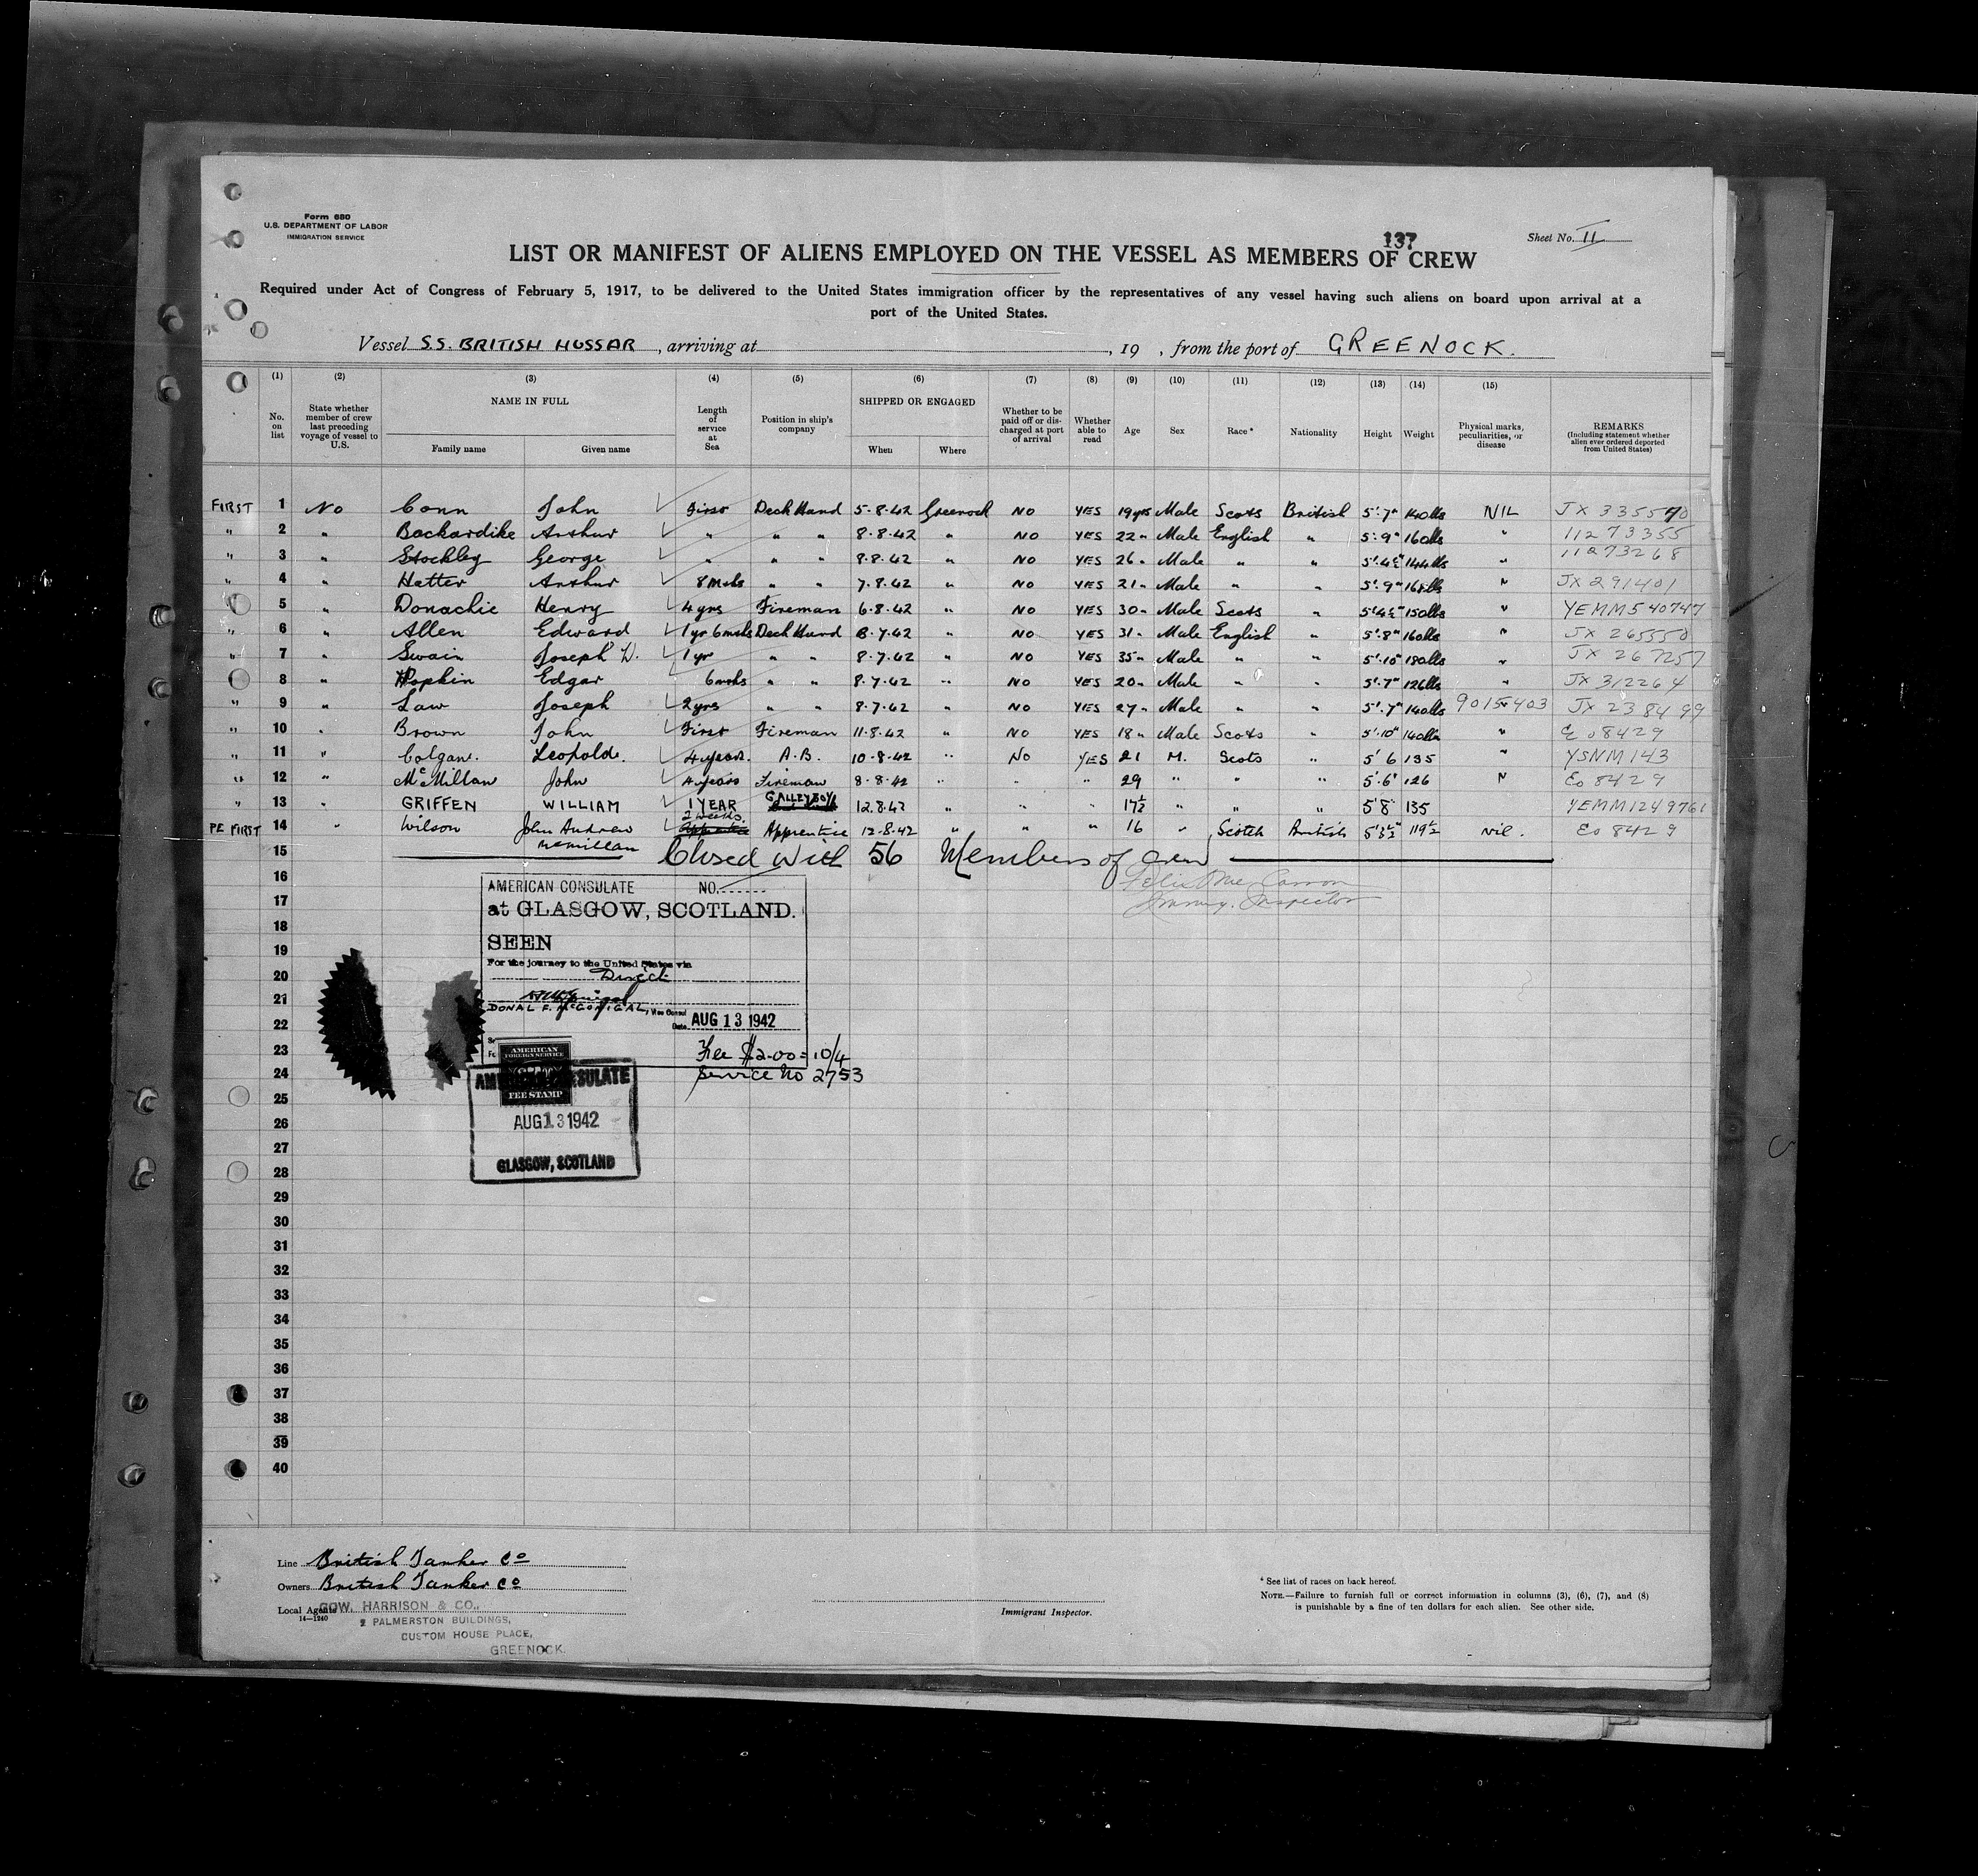 Form 680
U.S. DEPARTMENT OF LABOR
IMMIGRATION SERVICE
137
Sheet No. II
LIST OR MANIFEST OF ALIENS EMPLOYED ON THE VESSEL AS MEMBERS OF CREW
Required under Act of Congress of February 5, 1917, to be delivered to the United States immigration officer by the representatives of any vessel having such aliens on board upon arrival at a
port of the United States.
Vessel S.S. BRITISH HUSSAR, arriving at , 19 , from the port of GREENOCK.
(1) (2) (3) (4) (5) (6) (7) (8) (9) (10) (11) (12) (13) (14) (15)
No. on list State whether member of crew last preceding voyage of vessel to U.S. NAME IN FULL Family name Given name Length of service at Sea Position in ship's company SHIPPED OR ENGAGED When Where Whether to be paid off or discharged at port of arrival Whether able to read Age Sex Race* Nationality Height Weight Physical marks, peculiarities, or disease REMARKS (Including statement whether alien ever ordered deported from United States)
FIRST 1 No Conn John First Deck Hand 5-8-42 Greenock NO YES 19 yrs Male Scots British 5'.7" 140lbs NIL JX 335570
" 2 " Backardike Arthur " " " 8.8.42 " NO YES 22 " Male English " 5'.9" 160lbs " 11273355
" 3 " Stockley George " " " 8.8.42 " NO YES 26 " Male " " 5'.4½" 144lbs " 11273268
" 4 " Hatter Arthur 8 Mnths " " 7.8.42 " NO YES 21 " Male " " 5'.9" 168lbs " JX 291401
" 5 " Donachie Henry 4 yrs Fireman 6.8.42 " NO YES 30 " Male Scots " 5'4½" 150lbs " YEMM540747
" 6 " Allen Edward 1 yr 6 mnths Deck Hand 8.7.42 " NO YES 31 " Male English " 5'.8" 160lbs " JX 265550
" 7 " Swain Joseph W. 1 yr " " 8.7.42 " NO YES 35 " Male " " 5'.10" 180lbs " JX 267257
" 8 " Hopkin Edgar 6 mnths " " 8.7.42 " NO YES 20 " Male " " 5'.7" 126lbs " JX 312264
" 9 " Law Joseph 2 yrs " " 8.7.42 " NO YES 27 " Male " " 5'.7" 140lbs 9015403 JX 238499
" 10 " Brown John First Fireman 11.8.42 " NO YES 18 " Male Scots " 5'.10" 140lbs " Eo 8429
" 11 " Colgan. Leopold. 4 years. A.B. 10-8-42 " No YES 21 M. Scots " 5' 6 135 " YSNM 143
" 12 " McMillan John 4 years Fireman 8-8-42 " " " 29 " " " 5'.6" 126 " Eo 8429
" 13 " GRIFFEN WILLIAM 1 YEAR GALLEY BOY 12.8.42 " " " 17½ " " " 5'8" 135 YEMM1249761
PE FIRST 14 " Wilson John Andrew McMillan 2 weeks. Apprentice Apprentice 12-8-42 " " " 16 " Scotch British 5'3½" 119½ Nil. Eo 8429
15 Closed with 56 Members of crew
16
17
18
19
20
21
22
23
24
25
26
27
28
29
30
31
32
33
34
35
36
37
38
39
40
Immig. Inspector
AMERICAN CONSULATE NO.
at GLASGOW, SCOTLAND.
SEEN
For the journey to the United States via
Direct
DONAL F. McGONIGAL, Vice Consul
Date AUG 13 1942
Fee $2.00 = 10/4
Service No 2753
AMERICAN
FOREIGN SERVICE
FEE STAMP
AMERICAN CONSULATE
AUG 13 1942
GLASGOW, SCOTLAND
Line British Tanker Co
Owners British Tanker Co
Local Agents GOW, HARRISON & CO.,
14—1240
2 PALMERSTON BUILDINGS,
CUSTOM HOUSE PLACE,
GREENOCK.
Immigrant Inspector.
* See list of races on back hereof.
NOTE.—Failure to furnish full or correct information in columns (3), (6), (7), and (8)
is punishable by a fine of ten dollars for each alien. See other side.